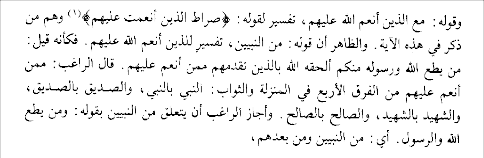 وقوله: مع الذين أنعم الله عليهم، تفسير لقوله: ﴿صراط الذين أنعمت عليهم﴾(١) وهم من
ذكر في هذه الآية. والظاهر أن قوله: من النبيين، تفسير للذين أنعم الله عليهم. فكأنه قيل:
من يطع الله ورسوله منكم ألحقه الله بالذين تقدمهم ممن أنعم عليهم. قال الراغب: ممن
أنعم عليهم من الفرق الأربع في المنزلة والثواب: النبي بالنبي، والصديق بالصديق،
والشهيد بالشهيد، والصالح بالصالح. وأجاز الراغب أن يتعلق من النبيين بقوله: ومن يطع
الله والرسول. أي: من النبيين ومن بعدهم،